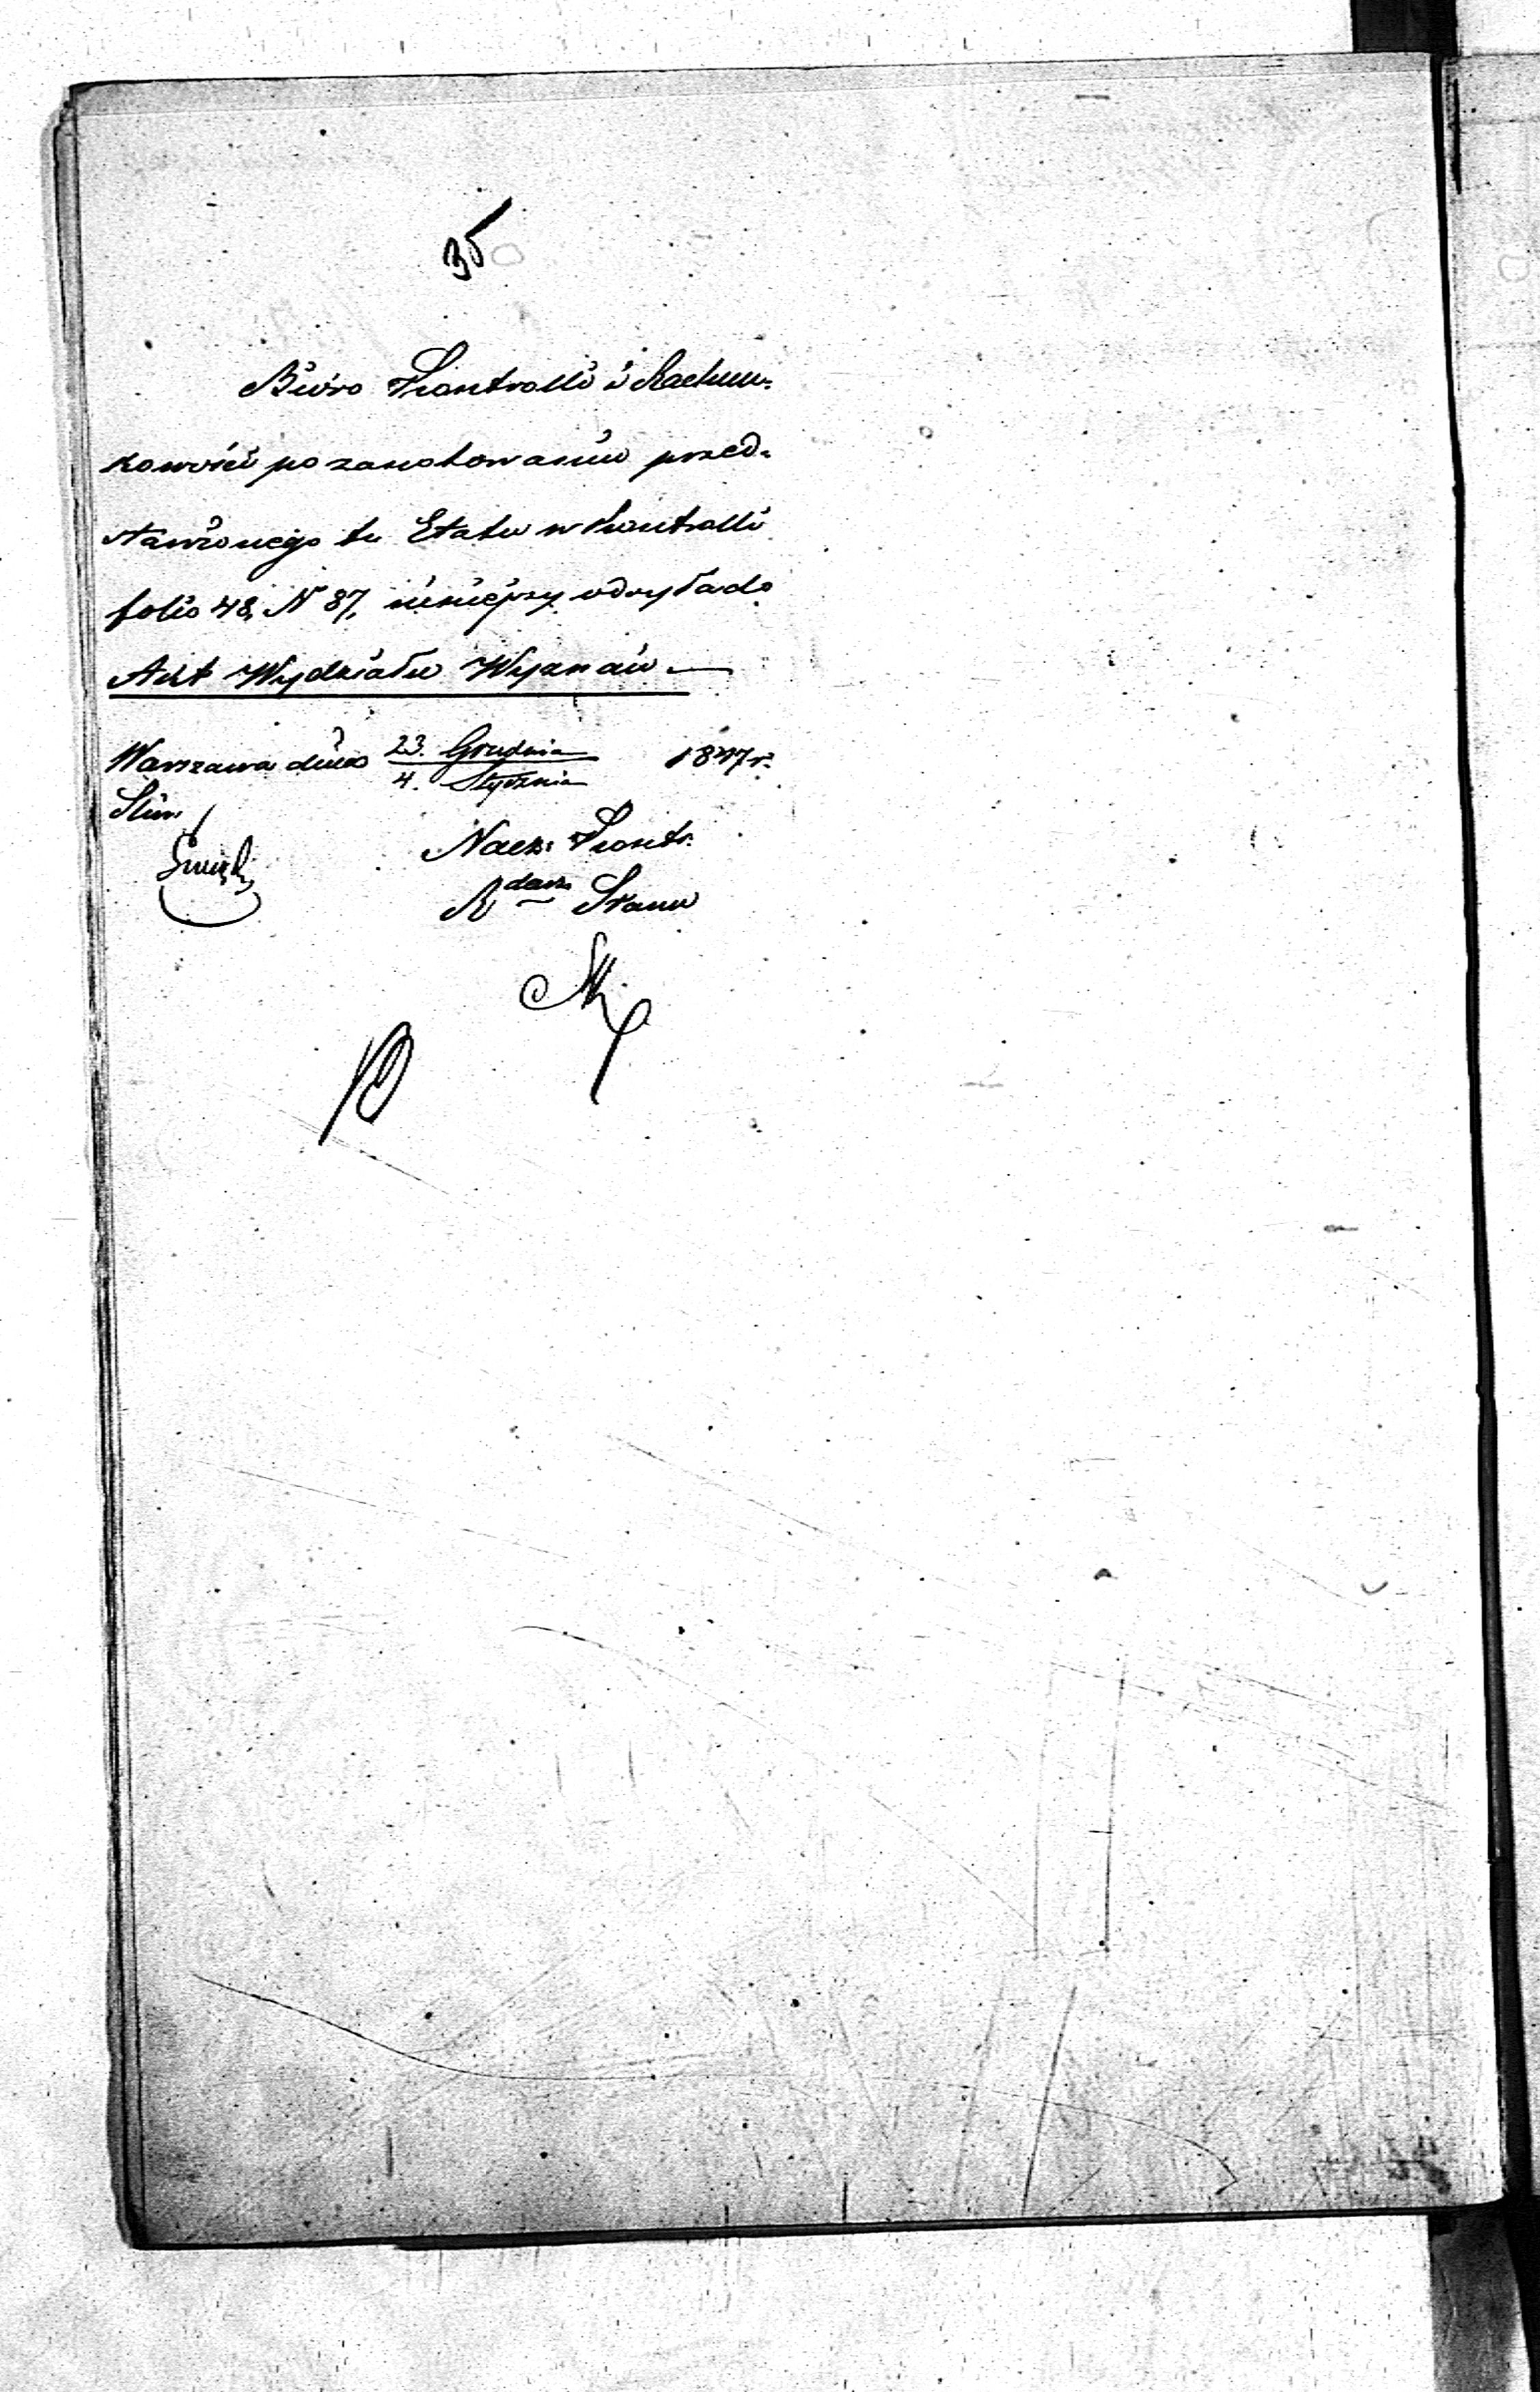 35
Biuro Kontrolli i Rachun-
kowości po zanotowaniu przed-
stawionego tu Etatu w Kontrolli
folio 48, N 87, niniejszy odsyła do
Akt Wydziału Wyznań —
Warszawa dnia 23. Grudnia 1847 r.
4. Stycznia
Nacz: Kontr.
R dca Stanu